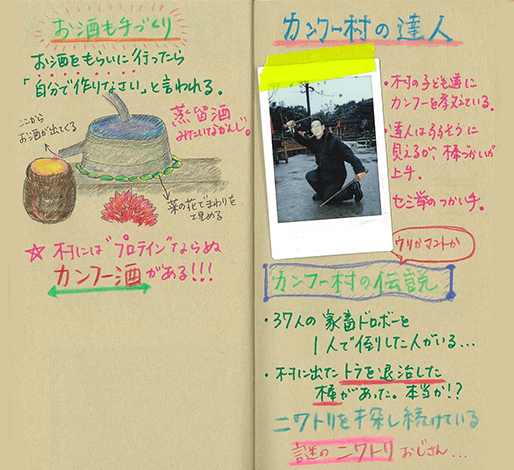 お酒も手づくり
お酒をもらいに行ったら
「自分で作りなさい」と言われる。
ここから
お酒が出てくる
蒸留酒
みたいなかんじ。
菜の花でまわりを
埋める
☆ 村には"プロテイン"ならぬ
カンフー酒がある!!!
カンフー村の達人
・村の子ども達に
カンフーを教えている。
・達人は弱そうに
見えるが、棒づかいが
上手。
セミ拳のつかい手。
ウソかマコトか
カンフー村の伝説
・37人の家畜ドロボーを
1人で倒した人がいる…
・村に出たトラを退治した
棒があった。本当か!?
ニワトリを探し続けている
謎のニワトリおじさん…